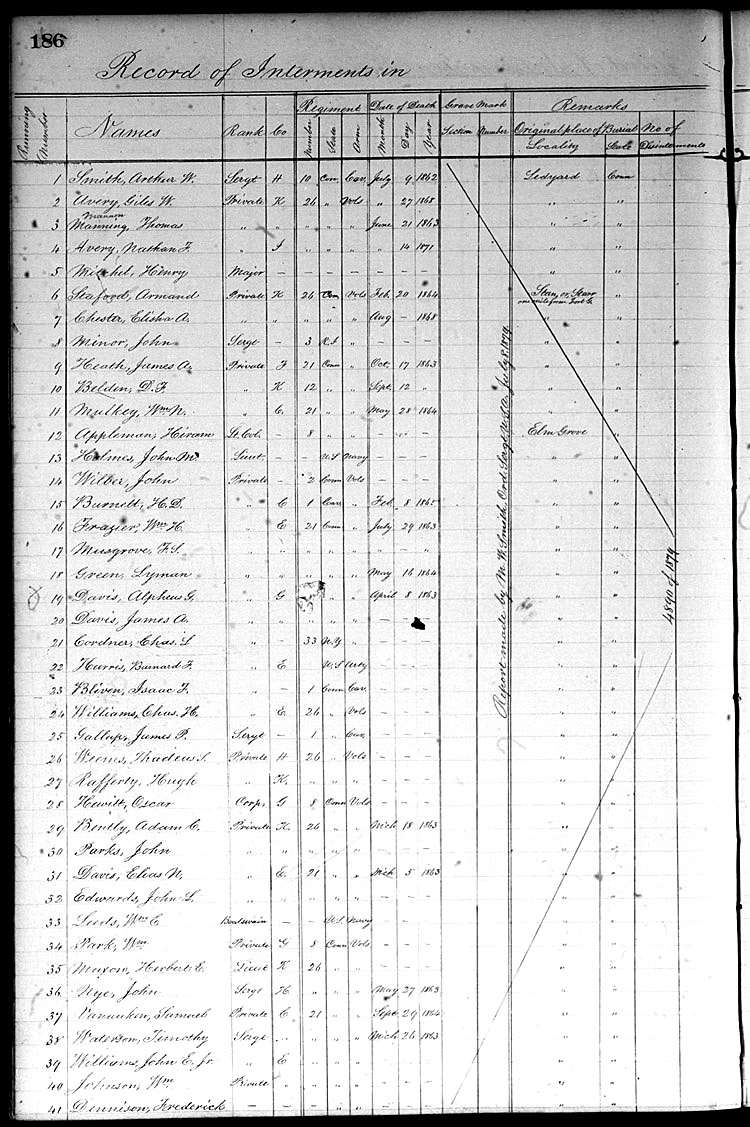 186
Record of Interments in
Running Number Names Rank Co Regiment Number State Arm Date of Death Month Day Year Grave Mark Section Number Remarks Original place of Burial Locality State No of Disinterments
1 Smith, Arthur W. Sergt H 10 Con Cav. July 9 1862 Ledyard Conn
2 Avery, Giles W. Private K 26 " Vols " 27 1868 " "
Mannon
3 Manning, Thomas " " " " " June 21 1863 " "
4 Avery, Nathan F. " I " " " " 14 1871 " "
5 Mitchel, Henry Major — — — — — — — " "
6 Seaford, Armand Private K 26 Con Vols Feb. 20 1864 Stan, or Starr "
one mile from
7 Chester, Elisha A. " " " " " Aug — 1868 " "
8 Minor, John Sergt — 3 R.I " — — — " "
9 Heath, James A. Private F 21 Conn " Oct. 17 1863 " "
10 Belden, D. F. " K 12 " " Sept. 12 " " "
11 Mulkey, Wm N. " C. 21 " " May 28 1864 " "
12 Appleman, Hiram Lt. Col. 8 " " — — — Elm Grove "
13 Holmes, John M. Lieut — — U.S Navy — — — " "
14 Wilber, John Private — 2 Conn Vols — — — " "
15 Burnett, H. D. " C 1 Cav. " Feb. 8 1865 " "
16 Frazier, Wm H. " E 21 Conn " July 29 1863 " "
17 Musgrove, F. S. " " " " " — — " " "
18 Green, Lyman " " " " " May 16 1864 " "
19 Davis, Alpheus G. " G " " April 8 1863 " "
20 Davis, James A. " " " " " — — — " "
21 Cordner, Chas. L " — 33 N.Y " — — — " "
22 Harris, Burnard F. " E U.S Arty — — — " "
23 Bliven, Isaac F. " — 1 Conn Cav. — — — " "
24 Williams, Chas. H. " E 26 " Vols — — — " "
25 Gallup, James P. Sergt — 1 " Cav. — — — " "
26 Weems, Thadeus S. Private H 26 " Vols — — — " "
27 Rafferty, Hugh " K. " " " — — — " "
28 Hewitt, Oscar Corp. G 8 Conn Vols — — — " "
29 Bently, Adam C. Private K. 26 " " Mch 18 1863 " "
30 Parks, John " " " " " — — — " "
31 Davis, Elias N. " E. 21 " " Mch 5 1863 " "
32 Edwards, John L. " " " " " — — — " "
33 Leeds, Wm E. Boatswain — — U.S Navy — — — " "
34 Park, Wm Private G 8 Conn Vols — — — " "
35 Maxon, Herbert E. Lieut K 26 " " — — — " "
36 Nye, John Sergt H. " " " May 27 1863 " "
37 Vanauken, Samuel Private C 21 " " Sept 29 1864 " "
38 Waterson, Timothy Sergt " " " " Mch 26 1863 " "
39 Williams, John E. Jr. " E " " " — — — " "
40 Johnson, Wm Private " " " " — — — " "
41 Dennison, Frederick — — — " " — — — " "
Report made by M. F. Smith, Ord. Sergt U.S.A. July 8, 1879.
4890 of 1879